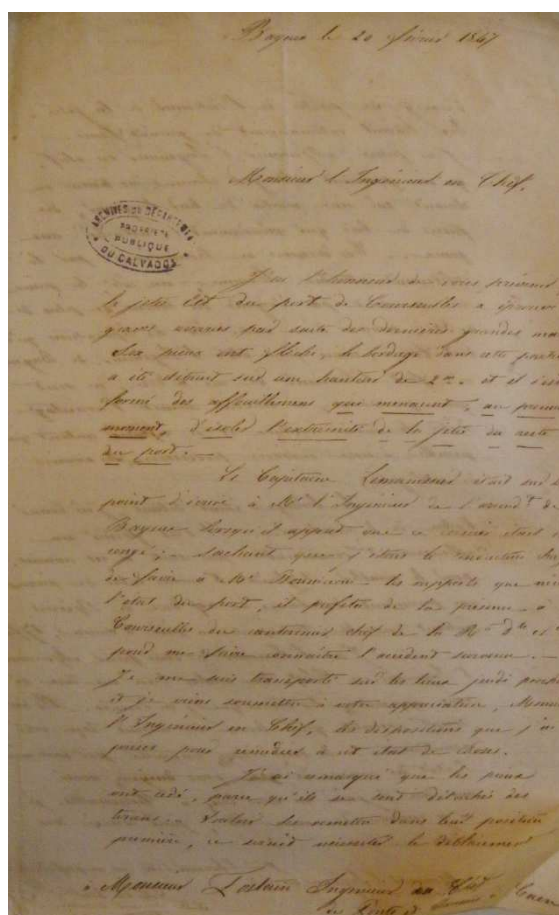 Bayeux le 20 février 1847
Monsieur l'Ingénieur en Chef,
ARCHIVES DU DÉPARTEMENT
PROPRIÉTÉ
PUBLIQUE
DU CALVADOS
J'ai l'honneur de vous prévenir
la jetée Est du port de Courseulles a éprouvé
graves avaries par suite des dernières grandes
Six pieux ont fléchi, le bordage dans cette partie
a été détruit sur une hauteur de 2m. et il s'est
formé des affouillemens qui menacent, au premier
moment, d'isoler l'extrémité de la jetée du reste
du port. —
Le Capitaine était sur le
point d'écrire à Mr l'Ingénieur de l'arrondt de
Bayeux lorsqu'il apprit que ce dernier était
sachant que j'étais le
de faire à Mr les rapports que
l'état du port, il profita de la présence à
Courseulles du cantonnier chef de la Rte
pour me faire connaître l'accident survenu. —
Je me suis transporté sur les lieux jeudi
et je viens soumettre à votre appréciation, Monsieur
l'Ingénieur en Chef, les dispositions que j'ai
prises pour remédier à cet état de choses.
J'ai remarqué que les pieux
ont cédé, parce qu'ils se sont détachés des
tirans. Vouloir les remettre dans leur position
première, ce serait nécessiter le déblaiement
à Monsieur Tostain Ingénieur en Chef
des Ponts et à Caen